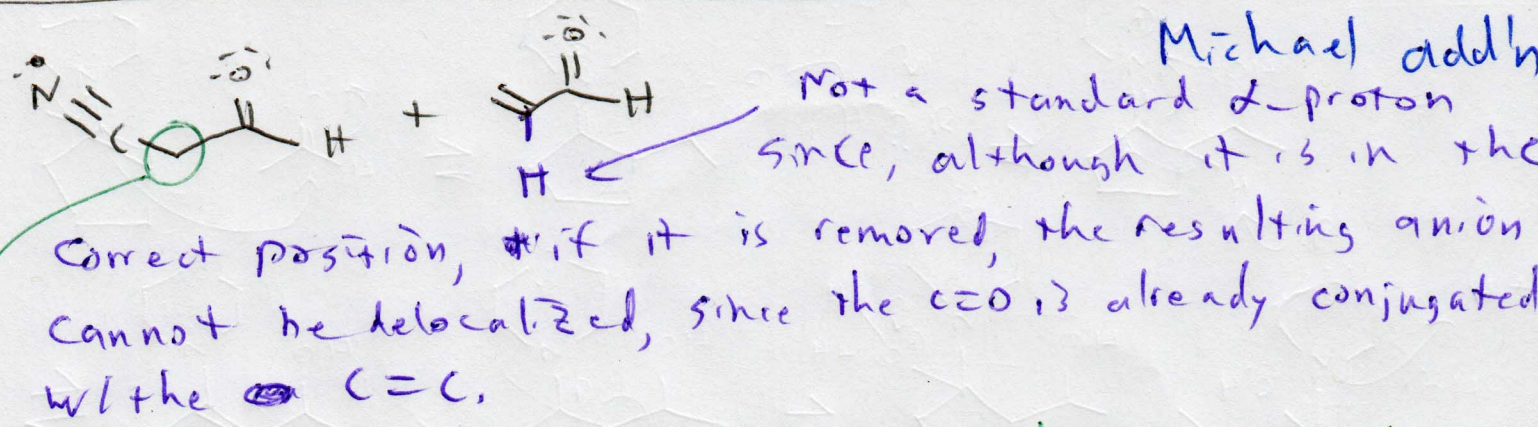 Michael add'n
Not a standard α-proton
since, although it is in the
correct position, if it is removed, the resulting anion
cannot be delocalized, since the C=O is already conjugated
w/ the C=C.
N C O H + O H
H